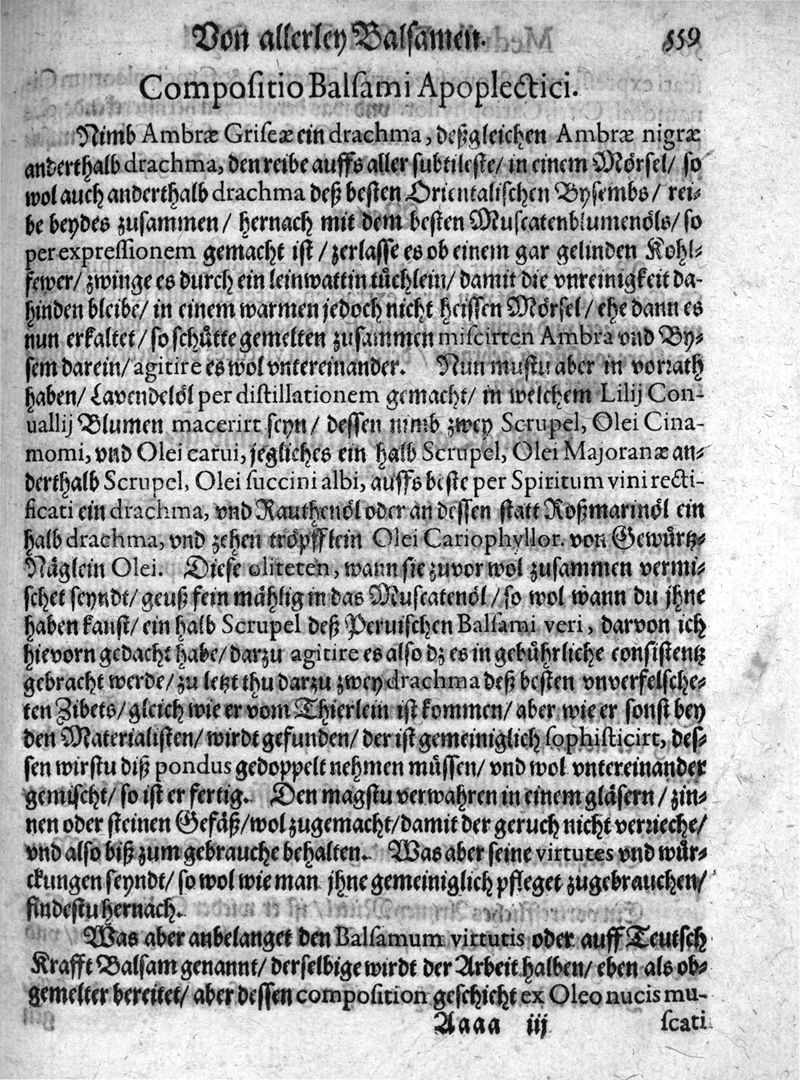 Von allerley Balsamen. 559
Compositio Balsami Apoplectici.
Nimb Ambræ Griseæ ein drachma, deßgleichen Ambræ nigræ
anderthalb drachma, den reibe auffs aller subtileste/ in einem Mörsel/ so
wol auch anderthalb drachma deß besten Orientalischen Bysembs/ rei-
be beydes zusammen/ hernach mit dem besten Muscatenblumenöls/ so
per expressionem gemacht ist/ zerlasse es ob einem gar gelinden Kohl-
fewer/ zwinge es durch ein leinwattin tüchlein/ damit die vnreinigkeit da-
hinden bleibe/ in einem warmen jedoch nicht heissen Mörsel/ ehe dann es
nun erkaltet/ so schütte gemelten zusammen miscirten Ambra vnd By-
sem darein/ agitire es wol vntereinander. Nun mustu aber in vorrath
haben/ Lavendelöl per distillationem gemacht/ in welchem Lilij Con-
uallij Blumen macerirt seyn/ dessen nimb zwey Scrupel, Olei Cina-
momi, vnd Olei carui, jegliches ein halb Scrupel, Olei Majoranæ an-
derthalb Scrupel, Olei succini albi, auffs beste per Spiritum vini recti-
ficati ein drachma, vnd Rauthenöl oder an dessen statt Roßmarinöl ein
halb drachma, vnd zehen tröpfflein Olei Cariophyllor. von Gewürtz-
Näglein Olei. Diese oliteten, wann sie zuvor wol zusammen vermi-
schet seyndt/ geuß fein mählig in das Muscatenöl/ so wol wann du jhne
haben kanst/ ein halb Scrupel deß Peruischen Balsami veri, darvon ich
hievorn gedacht habe/ darzu agitire es also dz es in gebührliche consistentz
gebracht werde/ zu letzt thu darzu zwey drachma deß besten vnverfelsche-
ten Zibets/ gleich wie er vom Thierlein ist kommen/ aber wie er sonst bey
den Materialisten/ wirdt gefunden/ der ist gemeiniglich sophisticirt, des-
sen wirstu diß pondus gedoppelt nehmen müssen/ vnd wol vntereinander
gemischt/ so ist er fertig. Den magstu verwahren in einem gläsern/ zin-
nen oder steinen Gefäß/ wol zugemacht/ damit der geruch nicht verrieche/
vnd also biß zum gebrauche behalten. Was aber seine virtutes vnd wür-
ckungen seyndt/ so wol wie man jhne gemeiniglich pfleget zugebrauchen/
findestu hernach.
Was aber anbelanget den Balsamum virtutis oder auff Teutsch
Krafft Balsam genannt/ derselbige wirdt der Arbeit halben/ eben als ob-
gemelter bereitet/ aber dessen composition geschicht ex Oleo nucis mu-
Aaaa iij scati